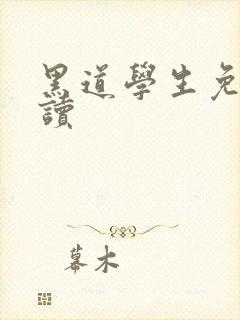 黑道學生免
讀
幕木